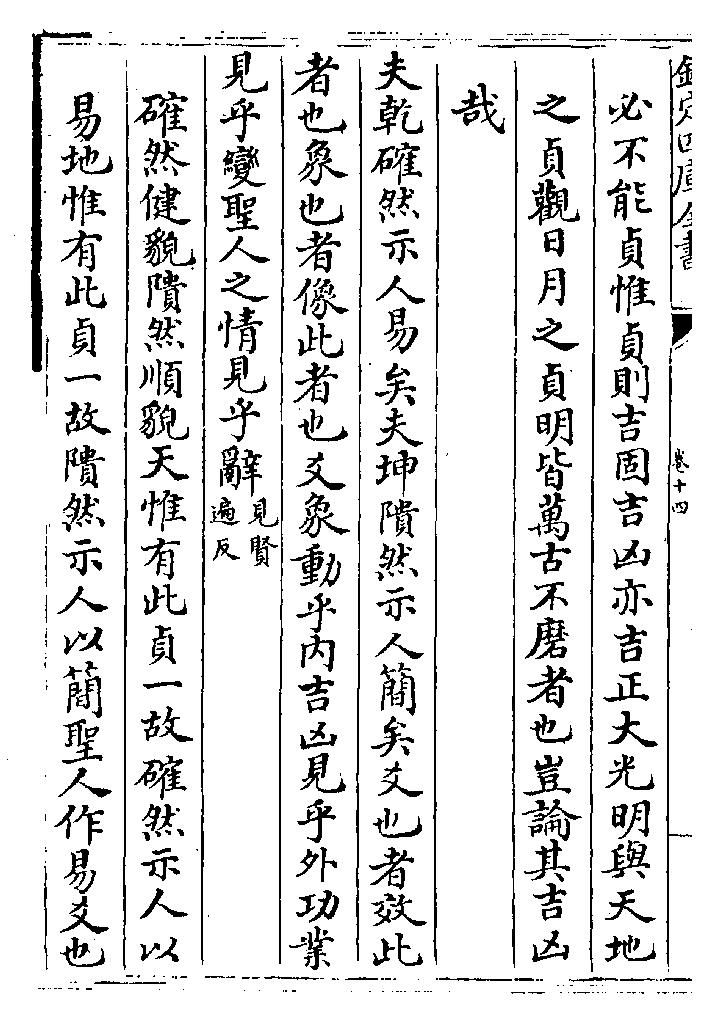 欽定四庫全書
卷十四
必不能貞惟貞則吉固吉凶亦吉正大光明與天地
之貞觀日月之貞明皆萬古不磨者也豈論其吉凶
哉
夫乾確然示人易矣夫坤隤然示人簡矣爻也者效此
者也象也者像此者也爻象動乎內吉凶見乎外功業
見乎變聖人之情見乎辭見賢
遍反
確然健貌隤然順貌天惟有此貞一故確然示人以
易地惟有此貞一故隤然示人以簡聖人作易爻也